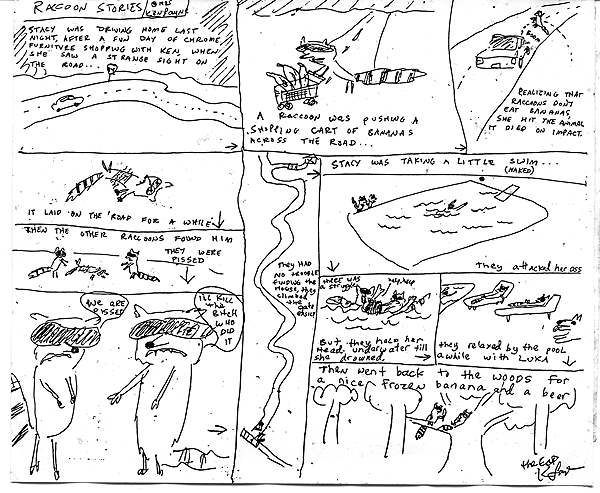 RACCOON STORIES
© 1985
KEN PAYNE
STACY WAS DRIVING HOME LAST
NIGHT, AFTER A FUN DAY OF CHROME
FURNITURE SHOPPING WITH KEN, WHEN
SHE SAW A STRANGE SIGHT ON
THE ROAD...
A RACCOON WAS PUSHING A
SHOPPING CART OF BANANAS
ACROSS THE ROAD...
REALIZING THAT
RACCOONS DON'T
EAT BANANAS,
SHE HIT THE ANIMAL
IT DIED ON IMPACT.
IT LAID ON THE ROAD FOR A WHILE
THEN THE OTHER RACCOONS FOUND HIM
THEY WERE
PISSED
WE ARE
PISSED
I'LL KILL
THE
BITCH
WHO
DID
IT
They HAD
NO TROUBLE
FINDING THE
HOUSE, they
climbed
the
gate
easily
STACY WAS TAKING A LITTLE SWIM...
(NAKED)
They attacked her ass
THERE WAS
A struggle
help, help
But they held her
Head underwater till
she drowned.
they relaxed by the pool
awhile with LUKA
Then went back to the woods for
a nice (frozen banana and a beer)
the End